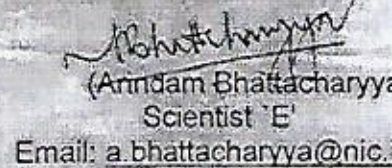 (Arindam Bhattacharyya
Scientist `E'
Email: a.bhattacharyya@nic.